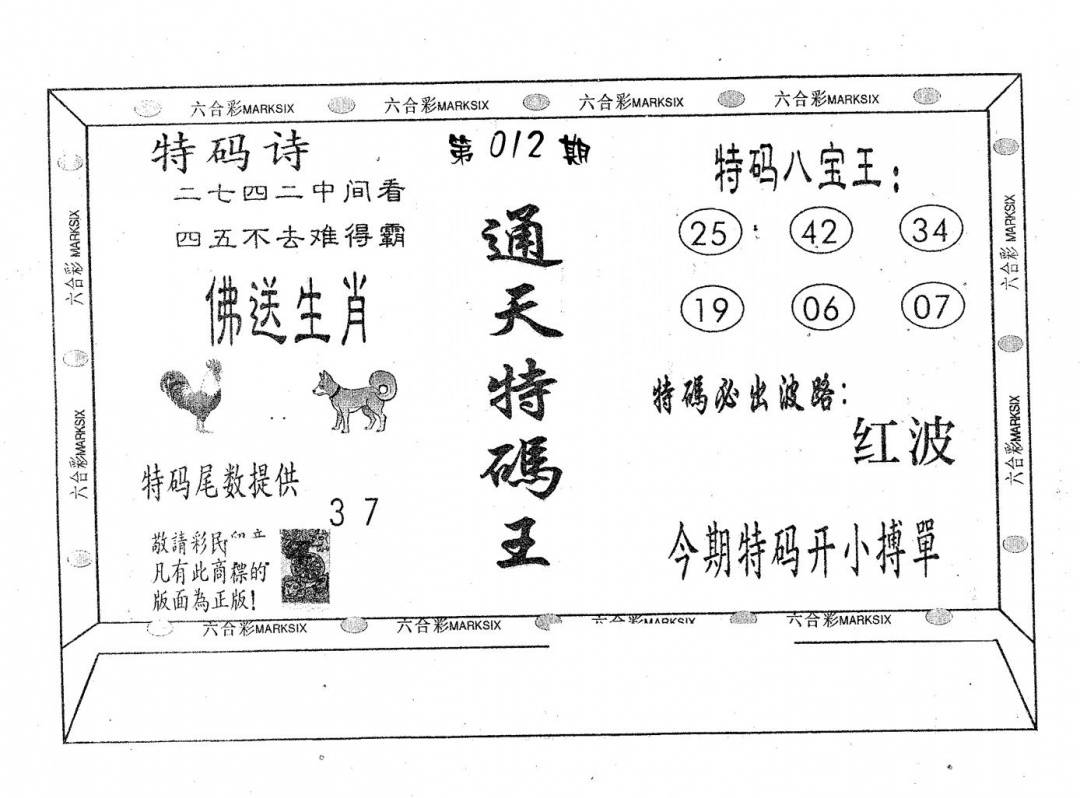 六合彩MARKSIX 六合彩MARKSIX 六合彩MARKSIX 六合彩MARKSIX
特码诗
二七四二中间看
四五不去难得霸
佛送生肖
特码尾数提供
3 7
敬請彩民
凡有此商標的
版面為正版!
第012期
通天特碼王
特码八宝王:
25 42 34
19 06 07
特碼必出波路:
红波
今期特码开小搏單
六合彩 MARKSIX
六合彩MARKSIX
六合彩 MARKSIX
六合彩MARKSIX
六合彩MARKSIX 六合彩MARKSIX 六合彩MARKSIX 六合彩MARKSIX